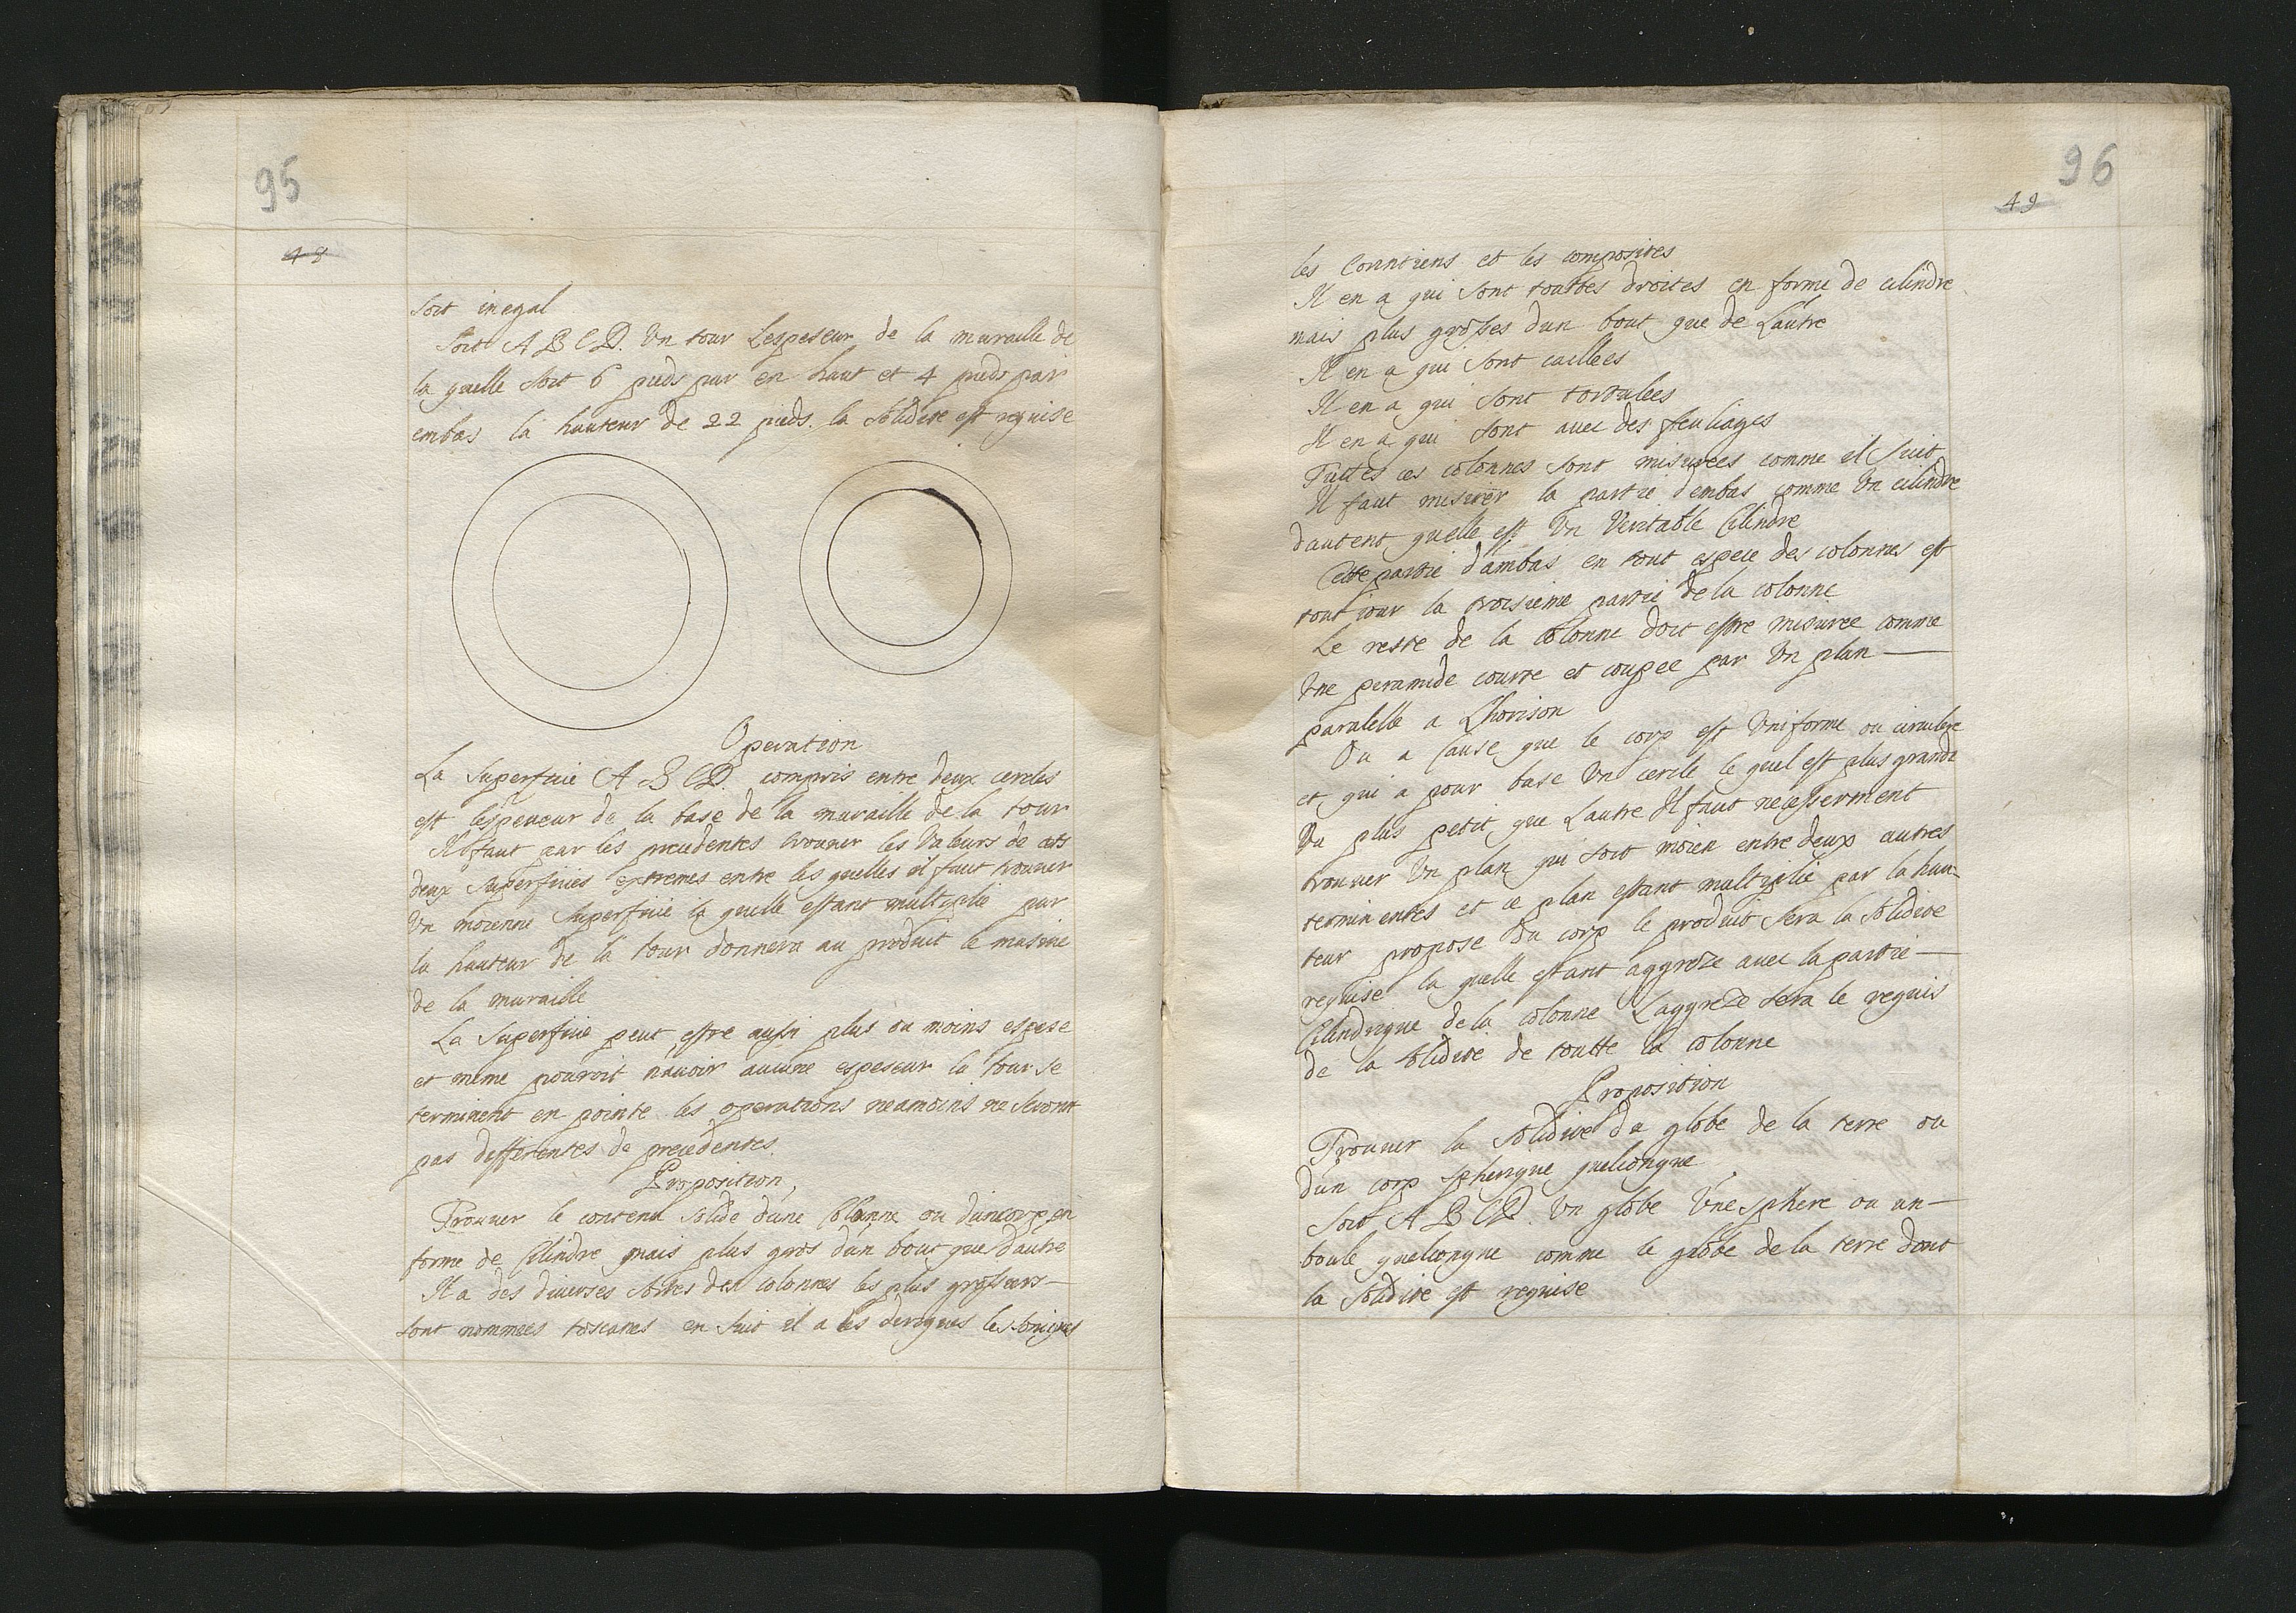 95
48
soit inegal
Soit A B C D. Un tour Lespeseur de la muraille de
la quelle soit 6 pieds par en haut et 4 pieds par
embas la hauteur de 22 pieds. la solidite est requise
Operation
La Superficie A B C D. compris entre deux cercles
est lespeueur de la base de la muraille de la tour
Il faut par les precedentes trouuer les Valeurs de ces
deux Superficies extremes entre les quelles il faut trouuer
Un moienne Superficie la quelle estant multiplie par
la hauteur de la tour donnera au produit le masive
de la muraille
La Superficie peut estre aussi plus ou moins espese
et meme pouroit nauoir aucune espeseur la tour se
terminent en pointe les operations neamoins ne seront
pas differentes de precedentes.
Proposition,
Trouuer le contenu solide dune Colonne ou dun corp en
forme de Cilindre mais plus gros dun bout que dautre
Il a des diuerses sortes des colonnes les plus grossiers —
sont nommees toscanes en suit il a les doriques les Ioniques
96
49
les Corintiens et les composites
Il en a qui sont touttes droites en forme de cilindre
mais plus grosses dun bout que de Lautre
Il en a qui sont caillees
Il en a qui sont tortulees
Il en a qui sont auec des feuliages
Tuttes ces colonnes sont misurees comme il suit
Il faut misurer la partie dembas comme Un cilindre
dautent quelle est Un Veritable Cilindre
Cette partie dambas en tout espece des colonnes est
tout iour la troisieme partie de la colonne
Le reste de la colonne doit estre misuree comme
Une piramide courte et coupee par Un plan —
paralelle a Lhorison
Ou a Cause que le corp est Uniforme ou circulere
et qui a pour base Un cercle le quel est plus grande
Ou plus petit que Lautre Il faut necesserment
trouuer Un plan qui soit moien entre deux autres
terminentes et ce plan estant multiplie par la hau-
teur propose du corp le produit sera la solidite
requise la quelle estant aggreze auec la partie —
Cilindrique de la colonne Laggreze sera le requis
de la solidite de toutte la colonne
Proposition
Trouuer la solidite du globe de la terre ou
dun corp spherique quelconque
Soit A B C D. Un globe Une sphere ou un —
boule quelconque comme le globe de la terre dont
la solidite est requise